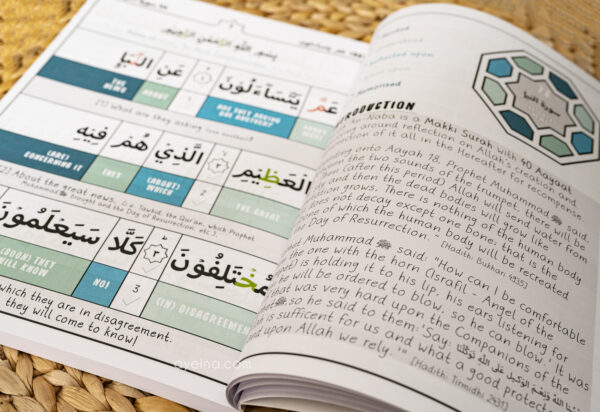 بِسْمِ اللَّهِ الرَّحْمَٰنِ الرَّحِيمِ
عَمَّ يَتَسَآءَلُونَ ١ عَنِ النَّبَإِ
ABOUT
ARE THEY ASKING
ONE ANOTHER?
1
ABOUT
THE
NEWS
(1) What are they asking one another?
الْعَظِيمِ ٢ الَّذِي هُمْ فِيهِ
THE GREAT
2
(ABOUT)
WHICH
THEY
(ARE)
CONCERNING IT
(2) About the great news, (i.e. Tawhid, the Quran, which Prophet
Muhammad ﷺ brought and the Day of Resurrection, etc.),
مُخْتَلِفُونَ ٣ كَلَّا سَيَعْلَمُونَ
(IN) DISAGREEMENT
3
NO!
(SOON) THEY
WILL KNOW
which they are in disagreement.
they will come to know!
Memorised
سورة النبأ
RODUCTION
-Naba is a Makki Surah with 40 Aayaat
around reflection on Allah's creation and
ection of it all in the Hereafter for recompense.
onto Aayah 18, Prophet Muhammad ﷺ said,
ween the two sounds of the trumpet there will be
Then (after this period) Allah will send water from
and then the dead bodies will grow like
tation grows. There is nothing of the human body
does not decay except one bone; that is the
ne of which the human body will be recreated
Day of Resurrection." [Hadith: Bukhari 4935]
Muhammad ﷺ said: "How can I be comfortable
the one with the horn (Israfil - Angel of the
et) is holding it to his lip, his ears listening for
he will be ordered to blow, so he can blow.' It was
that was very hard upon the Companions of the
ﷺ so he said to them: 'Say:
is sufficent for us and what a good protect
upon Allah we rely.'" [Hadith: Tirmidhi 2431]
ayeina.com